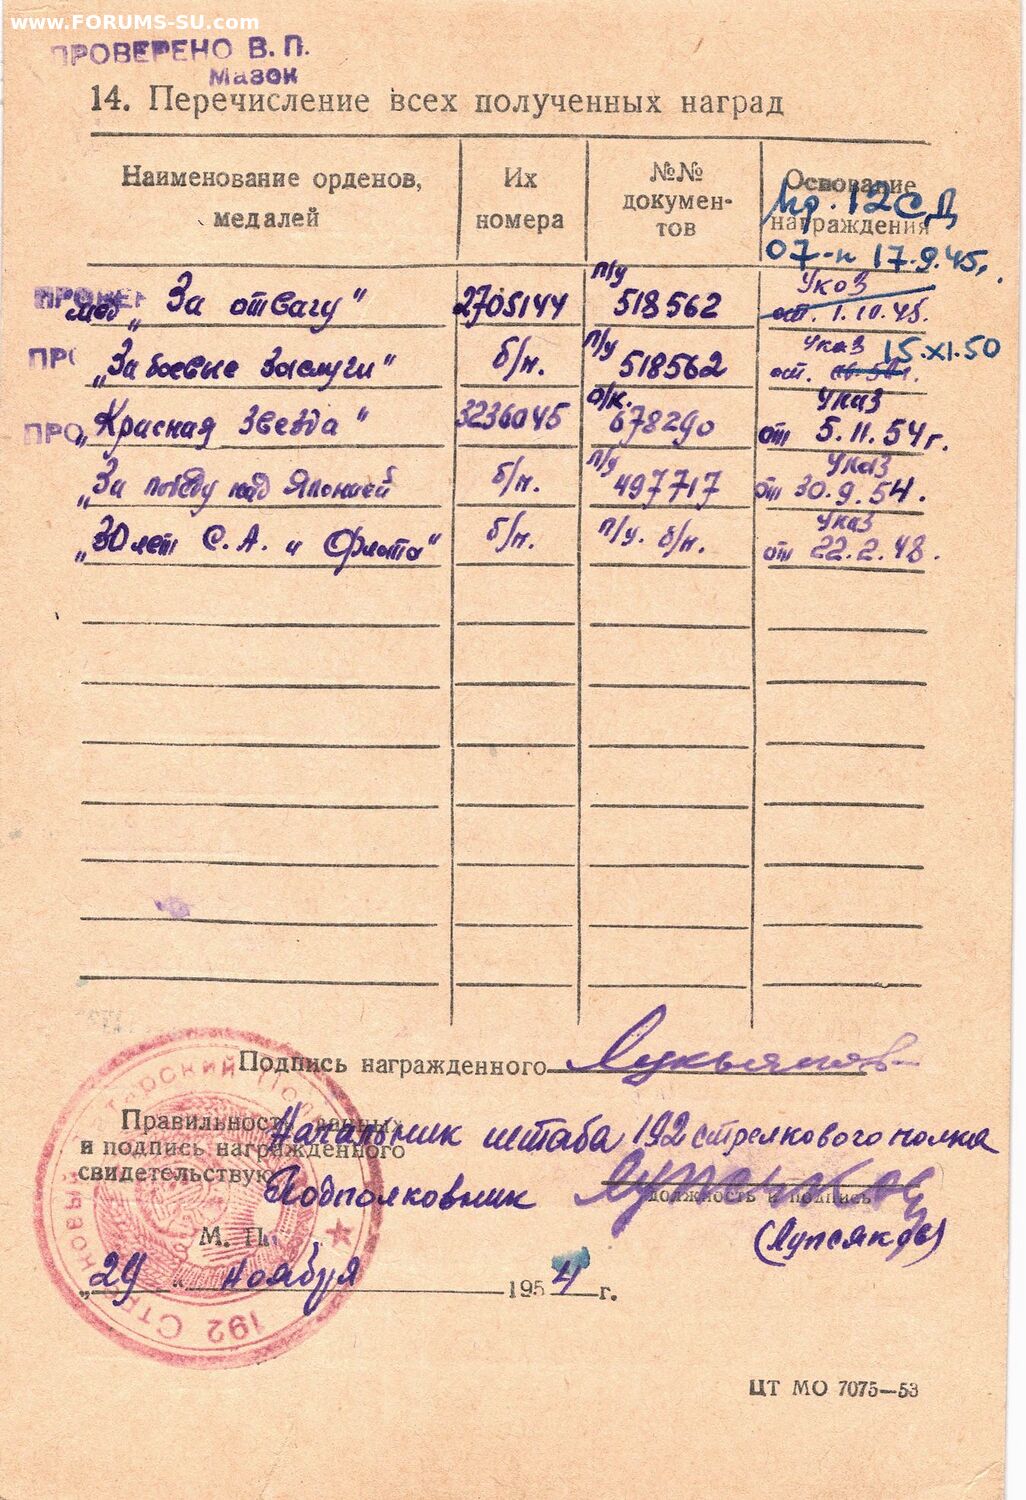 www.FORUMS-SU.com
ПРОВЕРЕНО В. П.
Мазок
14. Перечисление всех полученных наград
Наименование орденов, медалей
Их номера
№№ докумен-тов
Основание награждения
Пр. 12 СД
07-н 17.9.45г.
ПРОВЕР
мед „За отвагу" 2705144 п/у 518562 Указ от. 1.10.45.
ПРО
„За боевые заслуги" б/н. п/у 518562 Указ 15.XI.50 от.
ПРО
„Красная Звезда" 3236045 о/к. 678290 Указ от 5.11.54г.
„За победу над Японией б/н. п/у 497717 Указ от 30.9.54.
„30 лет С. А. и Флота" б/н. п/у. б/н. Указ от 22.2.48.
Подпись награжденного Лукьянов
Правильность данных
и подпись награжденного
свидетельствую
Начальник штаба 192 стрелкового полка
Подполковник
должность и подпись
М. П.
„29 " ноября 1954 г.
192 Стрелковый
ЦТ МО 7075—53